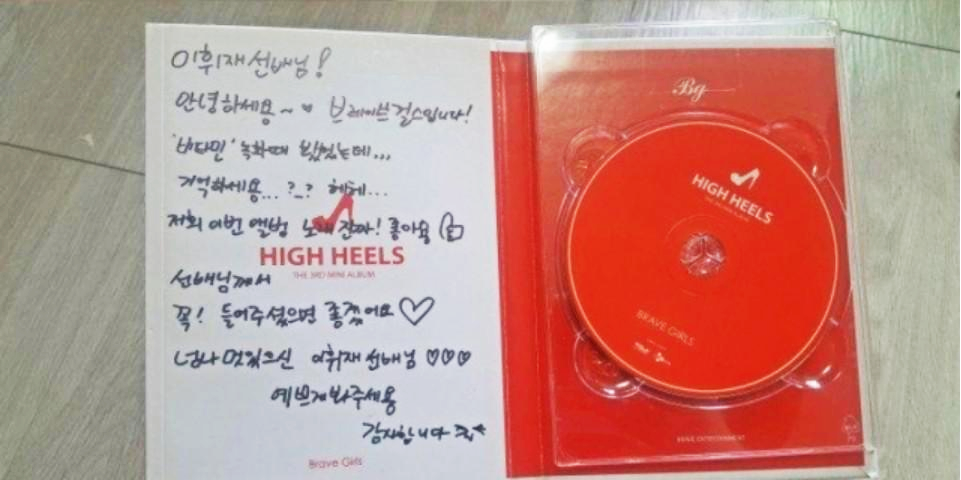 이휘재 선배님!
안녕하세용~ ♥ 브레이브걸스입니다!
'비타민' 녹화때 봤었는데...
기억하세용...?_? 헤헤...
저희 이번 앨범 노래 진짜! 좋아용
HIGH HEELS
THE 3RD MINI ALBUM
선배님께서
꼭! 들어주셨으면 좋겠어요♡
너무나 멋있으신 이휘재 선배님 ♡♡♡
예쁘게봐주세용
감사합니다
Brave Girls
Bg
HIGH HEELS
THE 3RD MINI ALBUM
BRAVE GIRLS
BRAVE ENTERTAINMENT